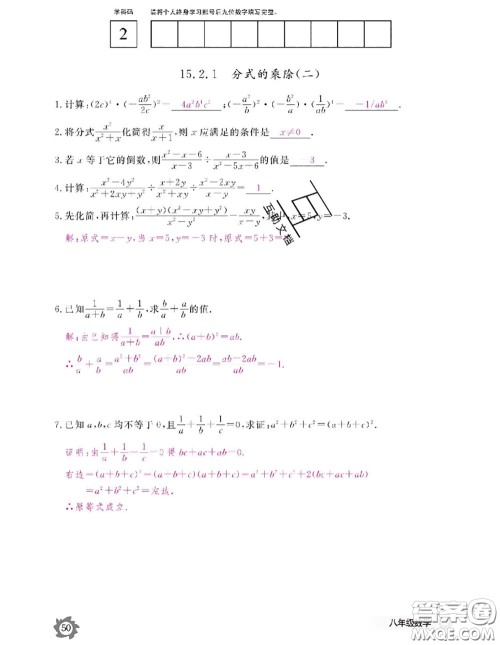 学科码 请将个人终身学习账号后九位数字填写完整。
2
15.2.1 分式的乘除(二)
1.计算:(2c)⁴·(-ab²/2c)²=4a²b⁴c²;(-a²/b)²·(-b²/a)·(1/ab)⁴=-1/ab⁴.
2.将分式x²/(x²+x)化简得x/(x+1),则x应满足的条件是x≠0.
3.若x等于它的倒数,则(x²-x-6)/(x-3)÷(x-3)/(x²-5x-6)的值是3.
4.计算:(x²-4y²)/(x²+2xy+y²)÷(x+2y)/(x+y)÷(x-2y)/(x+y)=1.
5.先化简,再计算:
x=5,y=-3.
解:原式=x-y,当x=5,y=-3时,原式=5+3=
互动文档
6.已知1/(a+b)=1/a+1/b,求b/a+a/b的值.
解:由已知得1/(a+b)=(a+b)/ab,∴(a+b)²=ab.
∴b/a+a/b=(a²+b²)/ab=((a+b)²-2ab)/ab=(ab-2ab)/ab=-1.
7.已知a,b,c均不等于0,且1/a+1/b+1/c=0,求证:a²+b²+c²=(a+b+c)².
=0得bc+ac+ab=0.
右边=(a+b+c)²=(a+b+c)(a+b+c)=a²+b²+c²+2(bc+ac+ab)
=a²+b²+c²=左边.
∴原等式成立.
50
八年级数学